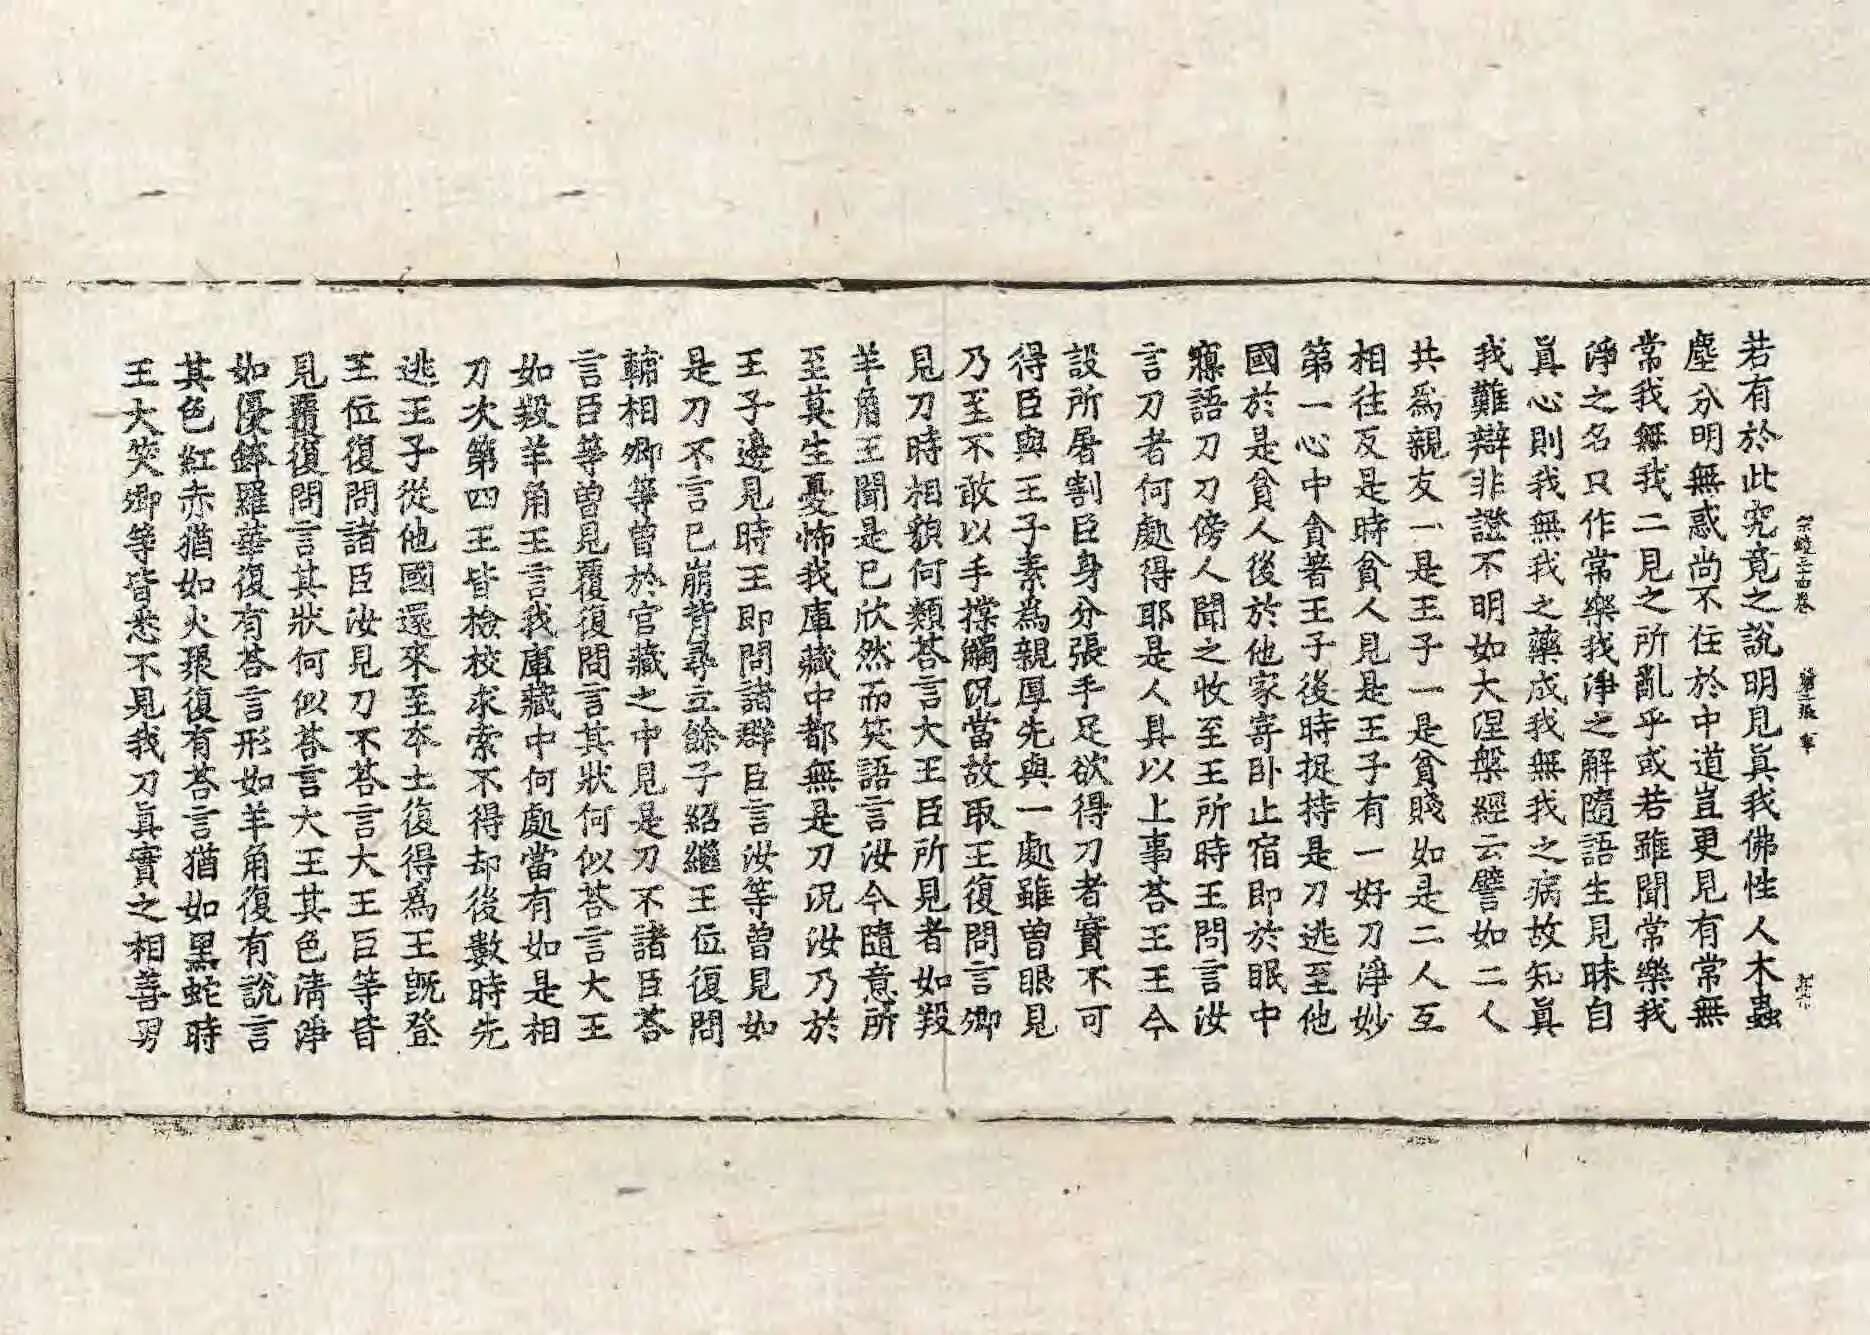 宗鏡三古卷 第二張 寧
若有於此究竟之說明見眞我佛性人木蟲
塵分明無惑尚不住於中道豈更見有常無
常我無我二見之所亂乎或若雖聞常樂我
淨之名只作常樂我淨之解隨語生見昧自
眞心則我無我之藥成我無我之病故知眞
我難辯非證不明如大涅槃經云譬如二人
共爲親友一是王子一是貧賤如是二人互
相往反是時貧人見是王子有一好刀淨妙
第一心中貪著王子後時捉持是刀逃至他
國於是貧人後於他家寄卧止宿即於眠中
寱語刀刀傍人聞之收至王所時王問言汝
言刀者何處得耶是人具以上事荅王王今
設所屠割臣身分張手足欲得刀者實不可
得臣與王子素爲親厚先與一處雖曾眼見
乃至不敢以手摚觸況當故取王復問言卿
見刀時相貌何類荅言大王臣所見者如羖
羊角王聞是已欣然而笑語言汝今隨意所
至莫生憂怖我庫藏中都無是刀況汝乃於
王子邊見時王即問諸群臣言汝等曾見如
是刀不言已崩背尋立餘子紹繼王位復問
輔相卿等曾於官藏之中見是刀不諸臣荅
言臣等曾見覆復問言其狀何似荅言大王
如羖羊角王言我庫藏中何處當有如是相
刀次第四王皆檢校求索不得却後數時先
逃王子從他國還來至本土復得爲王旣登
王位復問諸臣汝見刀不荅言大王臣等皆
見覆復問言其狀何似荅言大王其色清淨
如優鉢羅華復有荅言形如羊角復有說言
其色紅赤猶如火聚復有荅言猶如黑蛇時
王大笑卿等皆悉不見我刀眞實之相善男